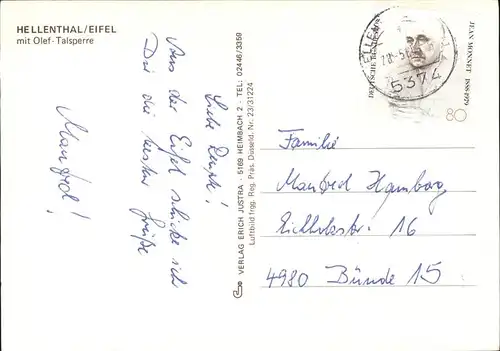 HELLENTHAL/EIFEL
mit Olef-Talsperre
Liebe
Aus der Eifel schicke ich
Dir die besten Grüße
Manfred!
VERLAG ERICH JUSTRA · 5169 HEIMBACH 2 · TEL: 02446/3359
Luftbild frgg. Reg. Präs. Düsseld. Nr. 23/31224
DEUTSCHE BUNDESPOST
JEAN MONNET 1888-1979
80
5374
Familie
Manfred Hamborg
16
4980 Bünde 15